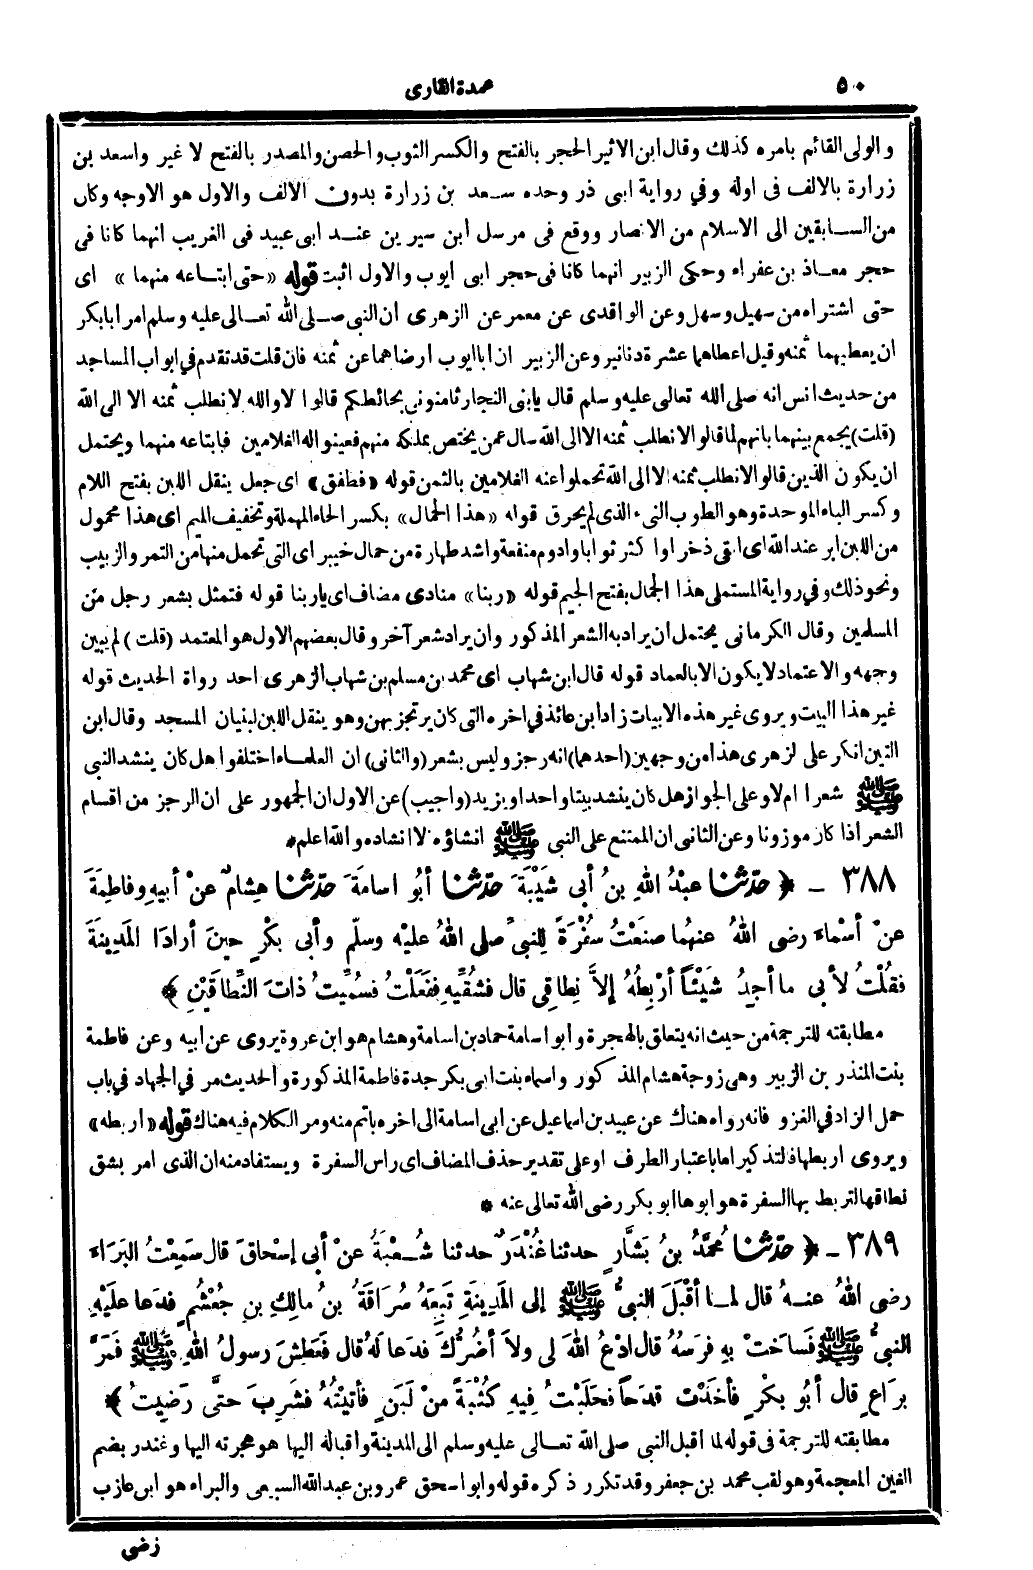 ٥٠
عمدة القارى
والولى القائم بامره كذلك وقال ابن الاثير الحجر بالفتح والكسر الثوب والحصن والمصدر بالفتح لا غير واسعد بن
زرارة بالالف فى اوله وفي رواية ابى ذر وحده سعد بن زرارة بدون الالف والاول هو الاوجه وكان
من السابقين الى الاسلام من الانصار ووقع فى مرسل ابن سيرين عند ابى عبيد فى الغريب انهما كانا فى
حجر معاذ بن عفراء وحكى الزبير انهما كانا فى حجر ابى ايوب والاول اثبت قوله «حتى ابتاعه منهما» اى
حتى اشتراه من سهيل وسهل وعن الواقدى عن معمر عن الزهرى ان النبى صلى الله تعالى عليه وسلم امر ابا بكر
ان يعطيهما ثمنه وقيل اعطاهما عشرة دنانير وعن الزبير ان ابا ايوب ارضاهما عن ثمنه فان قلت قد تقدم في ابواب المساجد
من حديث انس انه صلى الله تعالى عليه وسلم قال يابنى النجار ثامنونى بحائطكم قالوا لا والله لا نطلب ثمنه الا الى الله
(قلت) يجمع بينهما بانهم لما قالوا لا نطلب ثمنه الا الى الله سال عمن يختص بملكه منهم فعينوا له الغلامين فابتاعه منهما ويحتمل
ان يكون الذين قالوا لا نطلب ثمنه الا الى الله تحملوا عنه الغلامين بالثمن قوله «فطفق» اى جعل ينقل اللبن بفتح اللام
وكسر الباء الموحدة وهو الطوب النىء الذى لم يحرق قوله «هذا الحمال» بكسر الحاء المهملة وتخفيف الميم اى هذا محمول
من اللبن ابر عند الله اى ابقى ذخرا واكثر ثوابا وادوم منفعة واشد طهارة من حمال خيبر اى التى تحمل منها من التمر والزبيب
ونحو ذلك وفي رواية المستملى هذا الجمال بفتح الجيم قوله «ربنا» منادى مضاف اى ياربنا قوله فتمثل بشعر رجل من
المسلمين وقال الكرمانى يحتمل ان يراد به الشعر المذكور وان يراد شعر آخر وقال بعضهم الاول هو المعتمد (قلت) لم يبين
وجهه والاعتماد لا يكون الا بالعماد قوله قال ابن شهاب اى محمد بن مسلم بن شهاب الزهرى احد رواة الحديث قوله
غير هذا البيت ويروى غير هذه الابيات زاد ابن عائذ في اخره التى كان يرتجز بهن وهو ينقل اللبن لبنيان المسجد وقال ابن
التين انكر على الزهرى هذا من وجهين (احدهما) انه رجز وليس بشعر (والثانى) ان العلماء اختلفوا هل كان ينشد النبى
ﷺ شعرا ام لا وعلى الجواز هل كان ينشد بيتا واحدا ويزيد (واجيب) عن الاول ان الجمهور على ان الرجز من اقسام
الشعر اذا كان موزونا وعن الثانى ان الممتنع على النبى ﷺ انشاؤه لا انشاده والله اعلم *
٣٨٨ - ﴿ حدّثنا عبْدُ اللهِ بنُ أبى شَيْبَةَ حدّثنا أبُو اسامةَ حدّثنا هِشامٌ عنْ أبيهِ وفاطِمَةَ
عنْ أسْماءَ رضى اللهُ عنهُما صنَعْتُ سُفْرَةً لِلنبىِّ صلى اللهُ عليْهِ وسلّم وأبى بكْرٍ حينَ أرادَا المَدِينَةَ
فقُلْتُ لأبى ما أجِدُ شَيْئاً أرْبِطُهُ إلاَّ نِطاقِى قال فشُقِّيهِ ففَعَلْتُ فسُمِّيتُ ذاتَ النِّطاقَيْنِ ﴾
مطابقته للترجمة من حيث انه يتعلق بالهجرة وأبو اسامة حماد بن اسامة وهشام هو ابن عروة يروى عن ابيه وعن فاطمة
بنت المنذر بن الزبير وهى زوجة هشام المذكور واسماء بنت ابى بكر جدة فاطمة المذكورة والحديث مر في الجهاد في باب
حمل الزاد في الغزو فانه رواه هناك عن عبيد بن اسماعيل عن ابى اسامة الى اخره باتم منه ومر الكلام فيه هناك قوله «اربطه»
ويروى اربطها فالتذكير اما باعتبار الظرف او على تقدير حذف المضاف اى راس السفرة ويستفاد منه ان الذى امر بشق
نطاقها لتربط بها السفرة هو ابوها ابو بكر رضى الله تعالى عنه *
٣٨٩ - ﴿ حدّثنا مُحمَّدُ بنُ بَشَّارٍ حدثنا غُنْدَرٌ حدثنا شُعْبَةُ عنْ أبى إسْحاقَ قال سَمِعْتُ البَرَاءَ
رضى اللهُ عنهُ قال لمَا أقْبَلَ النبىُّ ﷺ إلى المَدِينَةِ تَبِعَهُ سُرَاقَةُ بنُ مالِكِ بنِ جُعْشُمٍ فدَعا عليْهِ
النبىُّ ﷺ فَساخَتْ بهِ فرَسُهُ قال ادْعُ اللهَ لى ولاَ أضُرُّكَ فدَعا لَهُ قال فَعَطِشَ رسولُ اللهِ ﷺ فَمَرَّ
برَاعٍ قال أبُو بكْرٍ فأخَذْتُ قدَحاً فحَلَبْتُ فِيهِ كُثْبَةً منْ لَبَنٍ فأتَيْتُهُ فشَرِبَ حتَّى رَضِيتُ ﴾
مطابقته للترجمة فى قوله لما اقبل النبى صلى الله تعالى عليه وسلم الى المدينة واقباله اليها هو هجرته اليها وغندر بضم
الغين المعجمة وهو لقب محمد بن جعفر وقد تكرر ذكره قوله وابو اسحق عمرو بن عبد الله السبيعى والبراء هو ابن عازب
رضى